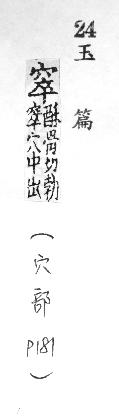 24玉篇
窣 酥骨切勃
窣穴中出
(穴部 P181)